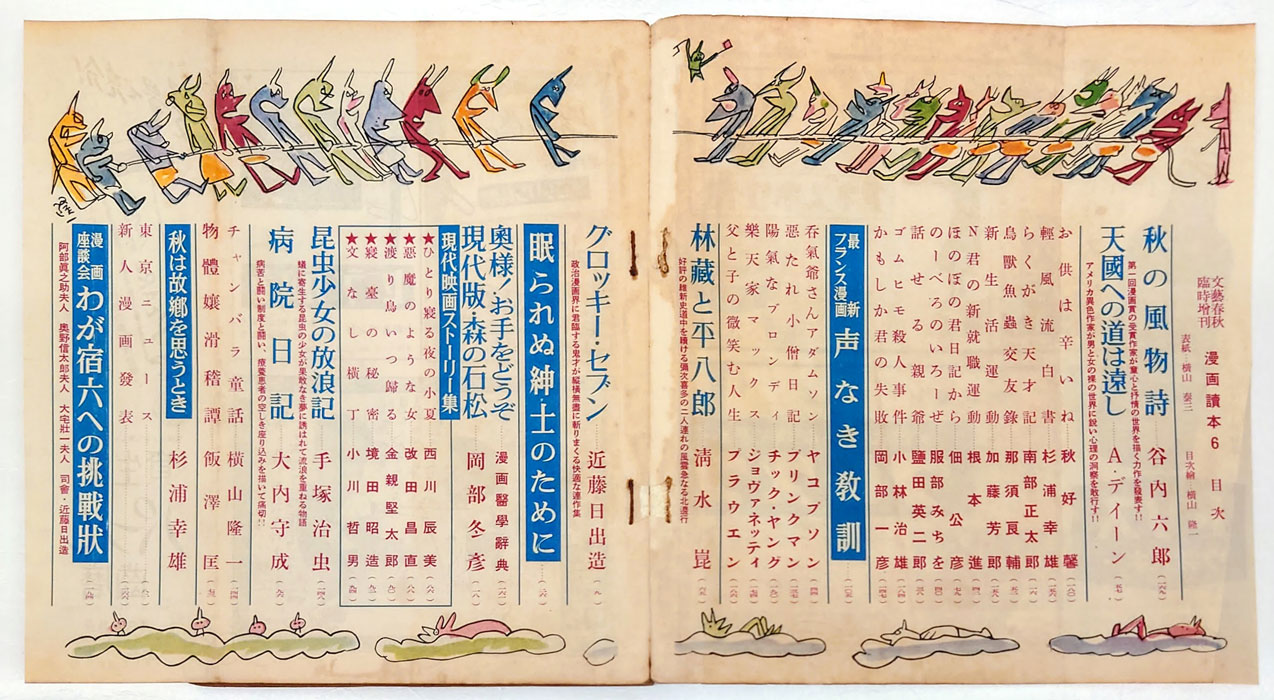 文藝春秋
臨時增刊
漫画讀本6 目次
表紙・横山泰三 目次繪・横山隆一
秋の風物詩 谷内六郎
第一回漫画賞の受賞作家が童心と抒情の世界を描く力作を發表す!!
天國への道は遠し A・ディーン
アメリカ異色作家が男と女の裸の世界に鋭い心理の洞察を敢行す!!
お供は辛いね 秋好馨
輕風流白書 杉浦幸雄
らくがき天才記 南部正太郎
鳥獸魚蟲交友錄 那須良輔
新生活運動 加藤芳郎
N君の新就職運動 根本進
ほのぼの君日記から 佃公彦
のーべろのいろーぜ 服部みちを
話せる親爺 鹽田英二郎
ゴムヒモ殺人事件 小林治雄
かもしか君の失敗 岡部一彦
最新
フランス漫画
声なき教訓
呑氣爺さんアダムソン ヤコブソン
惡たれ小僧日記 ブリンクマン
陽氣なブロンディ チック・ヤング
樂天家マックス ジョヴァネッティ
父と子の微笑む人生 プラウエン
林藏と平八郎 淸水崑
好評の維新史道中を續ける彌次喜多の二人連れの風雲急なる北邊行
グロッキー・セブン 近藤日出造
政治漫画界に君臨する鬼才が縱横無盡に斬りまくる快適な連作集
眠られぬ紳・士のために
奥様!お手をどうぞ 漫画醫學辭典
現代版・森の石松 岡部冬彦
現代映画ストーリー集
★ひとり寢る夜の小夏 西川辰美
★惡魔のような女 改田昌直
★渡り鳥いつ歸る 金親堅太郎
★寢臺の秘密 境田昭造
★文なし横丁 小川哲男
昆虫少女の放浪記 手塚治虫
蟻に寄生する昆虫の少女が果敢なき夢に誘はれて流浪を重ねる物語
病院日記 大内守成
病苦と鬪い制度と鬪い、療養患者の空しき座り込みを描いて痛切!!
チャンバラ童話 横山隆一
物體孃滑稽譚 飯澤匡
秋は故鄕を思うとき 杉浦幸雄
東京ニュース
新人漫画發表
漫画
座談会
わが宿六への挑戰狀
阿部眞之助夫人 奥野信太郎夫人 大宅壯一夫人 司會・近藤日出造